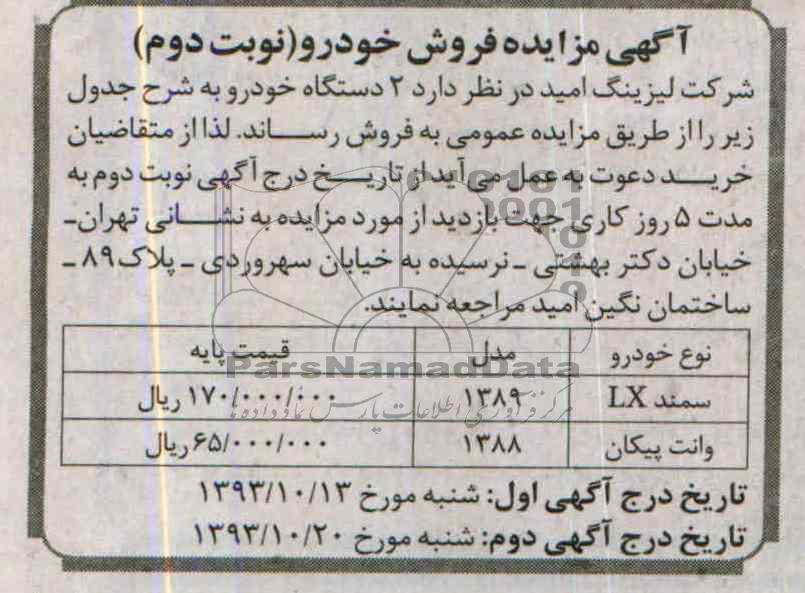 آگهی مزایده فروش خودرو(نوبت دوم)
شرکت لیزینگ امید در نظر دارد ۲ دستگاه خودرو به شرح جدول
زیر را از طریق مزایده عمومی به فروش رساند. لذا از متقاضیان
خرید دعوت به عمل می‌آید از تاریخ درج آگهی نوبت دوم به
مدت ۵ روز کاری جهت بازدید از مورد مزایده به نشانی تهران-
خیابان دکتر بهشتی - نرسیده به خیابان سهروردی - پلاک ۸۹ -
ساختمان نگین امید مراجعه نمایند.
نوع خودرو مدل قیمت پایه
سمند LX ۱۳۸۹ ۱۷۰/۰۰۰/۰۰۰ ریال
وانت پیکان ۱۳۸۸ ۶۵/۰۰۰/۰۰۰ ریال
تاریخ درج آگهی اول: شنبه مورخ ۱۳۹۳/۱۰/۱۳
تاریخ درج آگهی دوم: شنبه مورخ ۱۳۹۳/۱۰/۲۰
ParsNamadData
مرکز فرآوری اطلاعات پارس نماد داده ها